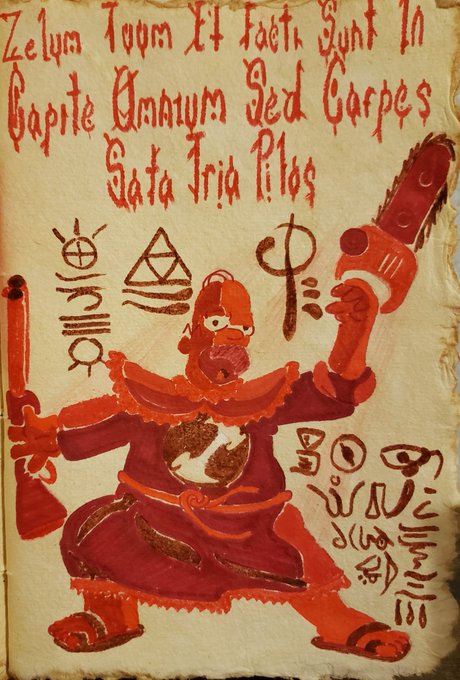 Zelum Tuum Et Facti Sunt In
Capite Omnium Sed Carpes
Sata Tria Pilos